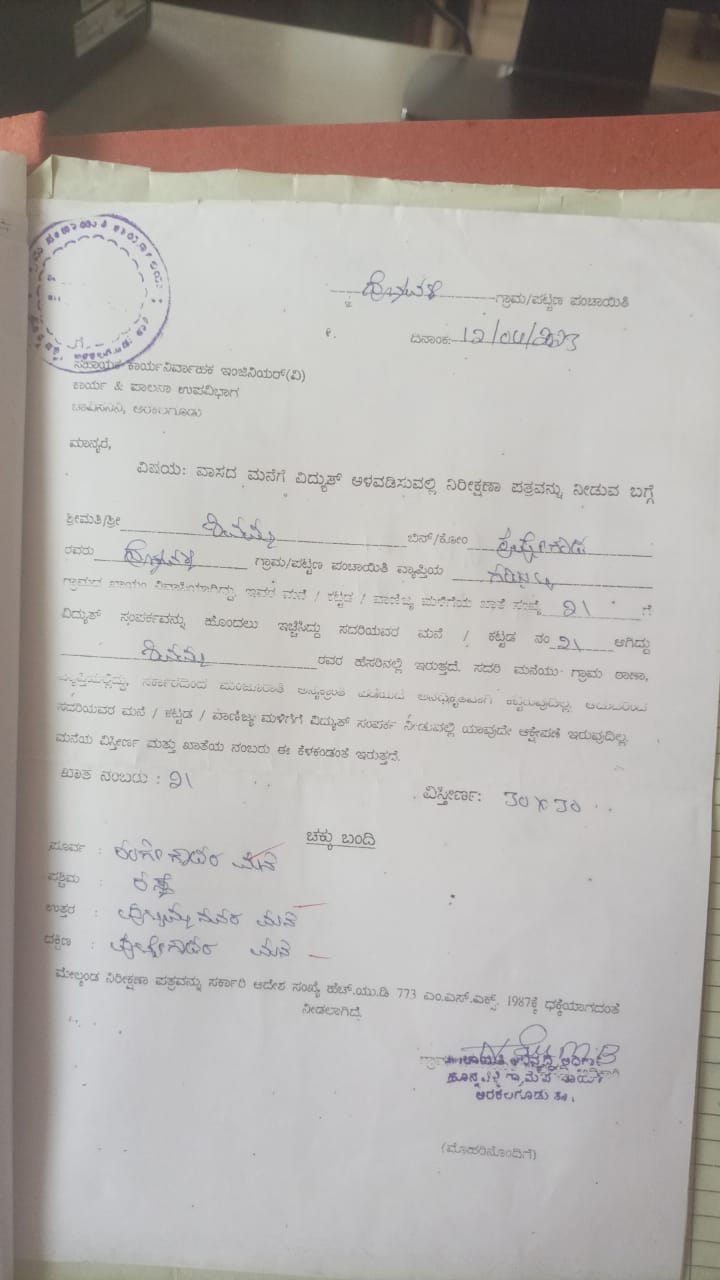 ಹೊನ್ನವಳ್ಳಿ ಗ್ರಾಮ/ಪಟ್ಟಣ ಪಂಚಾಯಿತಿ
ದಿನಾಂಕ: 12/04/2023
ಸಹಾಯಕ ಕಾರ್ಯನಿರ್ವಾಹಕ ಇಂಜಿನಿಯರ್(ವಿ)
ಕಾರ್ಯ & ಪಾಲನಾ ಉಪವಿಭಾಗ
ಚಾವಿಸನಿನಿ, ಅರಕಲಗೂಡು
ಮಾನ್ಯರೆ,
ವಿಷಯ: ವಾಸದ ಮನೆಗೆ ವಿದ್ಯುತ್ ಅಳವಡಿಸುವಲ್ಲಿ ನಿರೀಕ್ಷಣಾ ಪತ್ರವನ್ನು ನೀಡುವ ಬಗ್ಗೆ
ಶ್ರೀಮತಿ/ಶ್ರೀ ಶಿವಮ್ಮ ಬಿನ್/ಕೋಂ
ರವರು ಹೊನ್ನವಳ್ಳಿ ಗ್ರಾಮ/ಪಟ್ಟಣ ಪಂಚಾಯಿತಿ ವ್ಯಾಪ್ತಿಯ
ಗ್ರಾಮದ ಖಾಯಂ ನಿವಾಸಿಯಾಗಿದ್ದು, ಇವರ ಮನೆ / ಕಟ್ಟಡ / ವಾಣಿಜ್ಯ ಮಳಿಗೆಯ ಖಾತೆ ಸಂಖ್ಯೆ ೨೧ ಗೆ
ವಿದ್ಯುತ್ ಸಂಪರ್ಕವನ್ನು ಹೊಂದಲು ಇಚ್ಚಿಸಿದ್ದು ಸದರಿಯವರ ಮನೆ / ಕಟ್ಟಡ ನಂ ೨೧ ಆಗಿದ್ದು
ಶಿವಮ್ಮ ರವರ ಹೆಸರಿನಲ್ಲಿ ಇರುತ್ತದೆ. ಸದರಿ ಮನೆಯು ಗ್ರಾಮ ಠಾಣಾ,
ವ್ಯಾಪ್ತಿಯಲ್ಲಿದ್ದು, ಸರ್ಕಾರದಿಂದ ಮಂಜೂರಾತಿ ಅನಧೀಕೃತವಾಗಿ ಕಟ್ಟಿರುವುದಿಲ್ಲ. ಆದುದರಿಂದ
ಸದರಿಯವರ ಮನೆ / ಕಟ್ಟಡ / ವಾಣಿಜ್ಯ ಮಳಿಗೆಗೆ ವಿದ್ಯುತ್ ಸಂಪರ್ಕ ನೀಡುವಲ್ಲಿ ಯಾವುದೇ ಆಕ್ಷೇಪಣೆ ಇರುವುದಿಲ್ಲ.
ಮನೆಯ ವಿಸ್ತೀರ್ಣ ಮತ್ತು ಖಾತೆಯ ನಂಬರು ಈ ಕೆಳಕಂಡಂತೆ ಇರುತ್ತದೆ.
ಖಾತ ನಂಬರು : ೨೧ ವಿಸ್ತೀರ್ಣ: 30 x 30
ಚಕ್ಕು ಬಂದಿ
ಪೂರ್ವ : ರಂಗೇಗೌಡರ ಮನೆ
ಪಶ್ಚಿಮ : ರಸ್ತೆ
ಉತ್ತರ : ಮನೆ
ದಕ್ಷಿಣ : ಮನೆ
ಮೇಲ್ಕಂಡ ನಿರೀಕ್ಷಣಾ ಪತ್ರವನ್ನು ಸರ್ಕಾರಿ ಆದೇಶ ಸಂಖ್ಯೆ ಹೆಚ್.ಯು.ಡಿ 773 ಎಂ.ಎಸ್.ಎಕ್ಸ್. 1987ಕ್ಕೆ ಧಕ್ಕೆಯಾಗದಂತೆ
ನೀಡಲಾಗಿದೆ.
ಹೊನ್ನವಳ್ಳಿ ಗ್ರಾಮ ಪಂಚಾಯಿತಿ
ಅರಕಲಗೂಡು ತಾ.
(ಮೊಹರಿನೊಂದಿಗೆ)